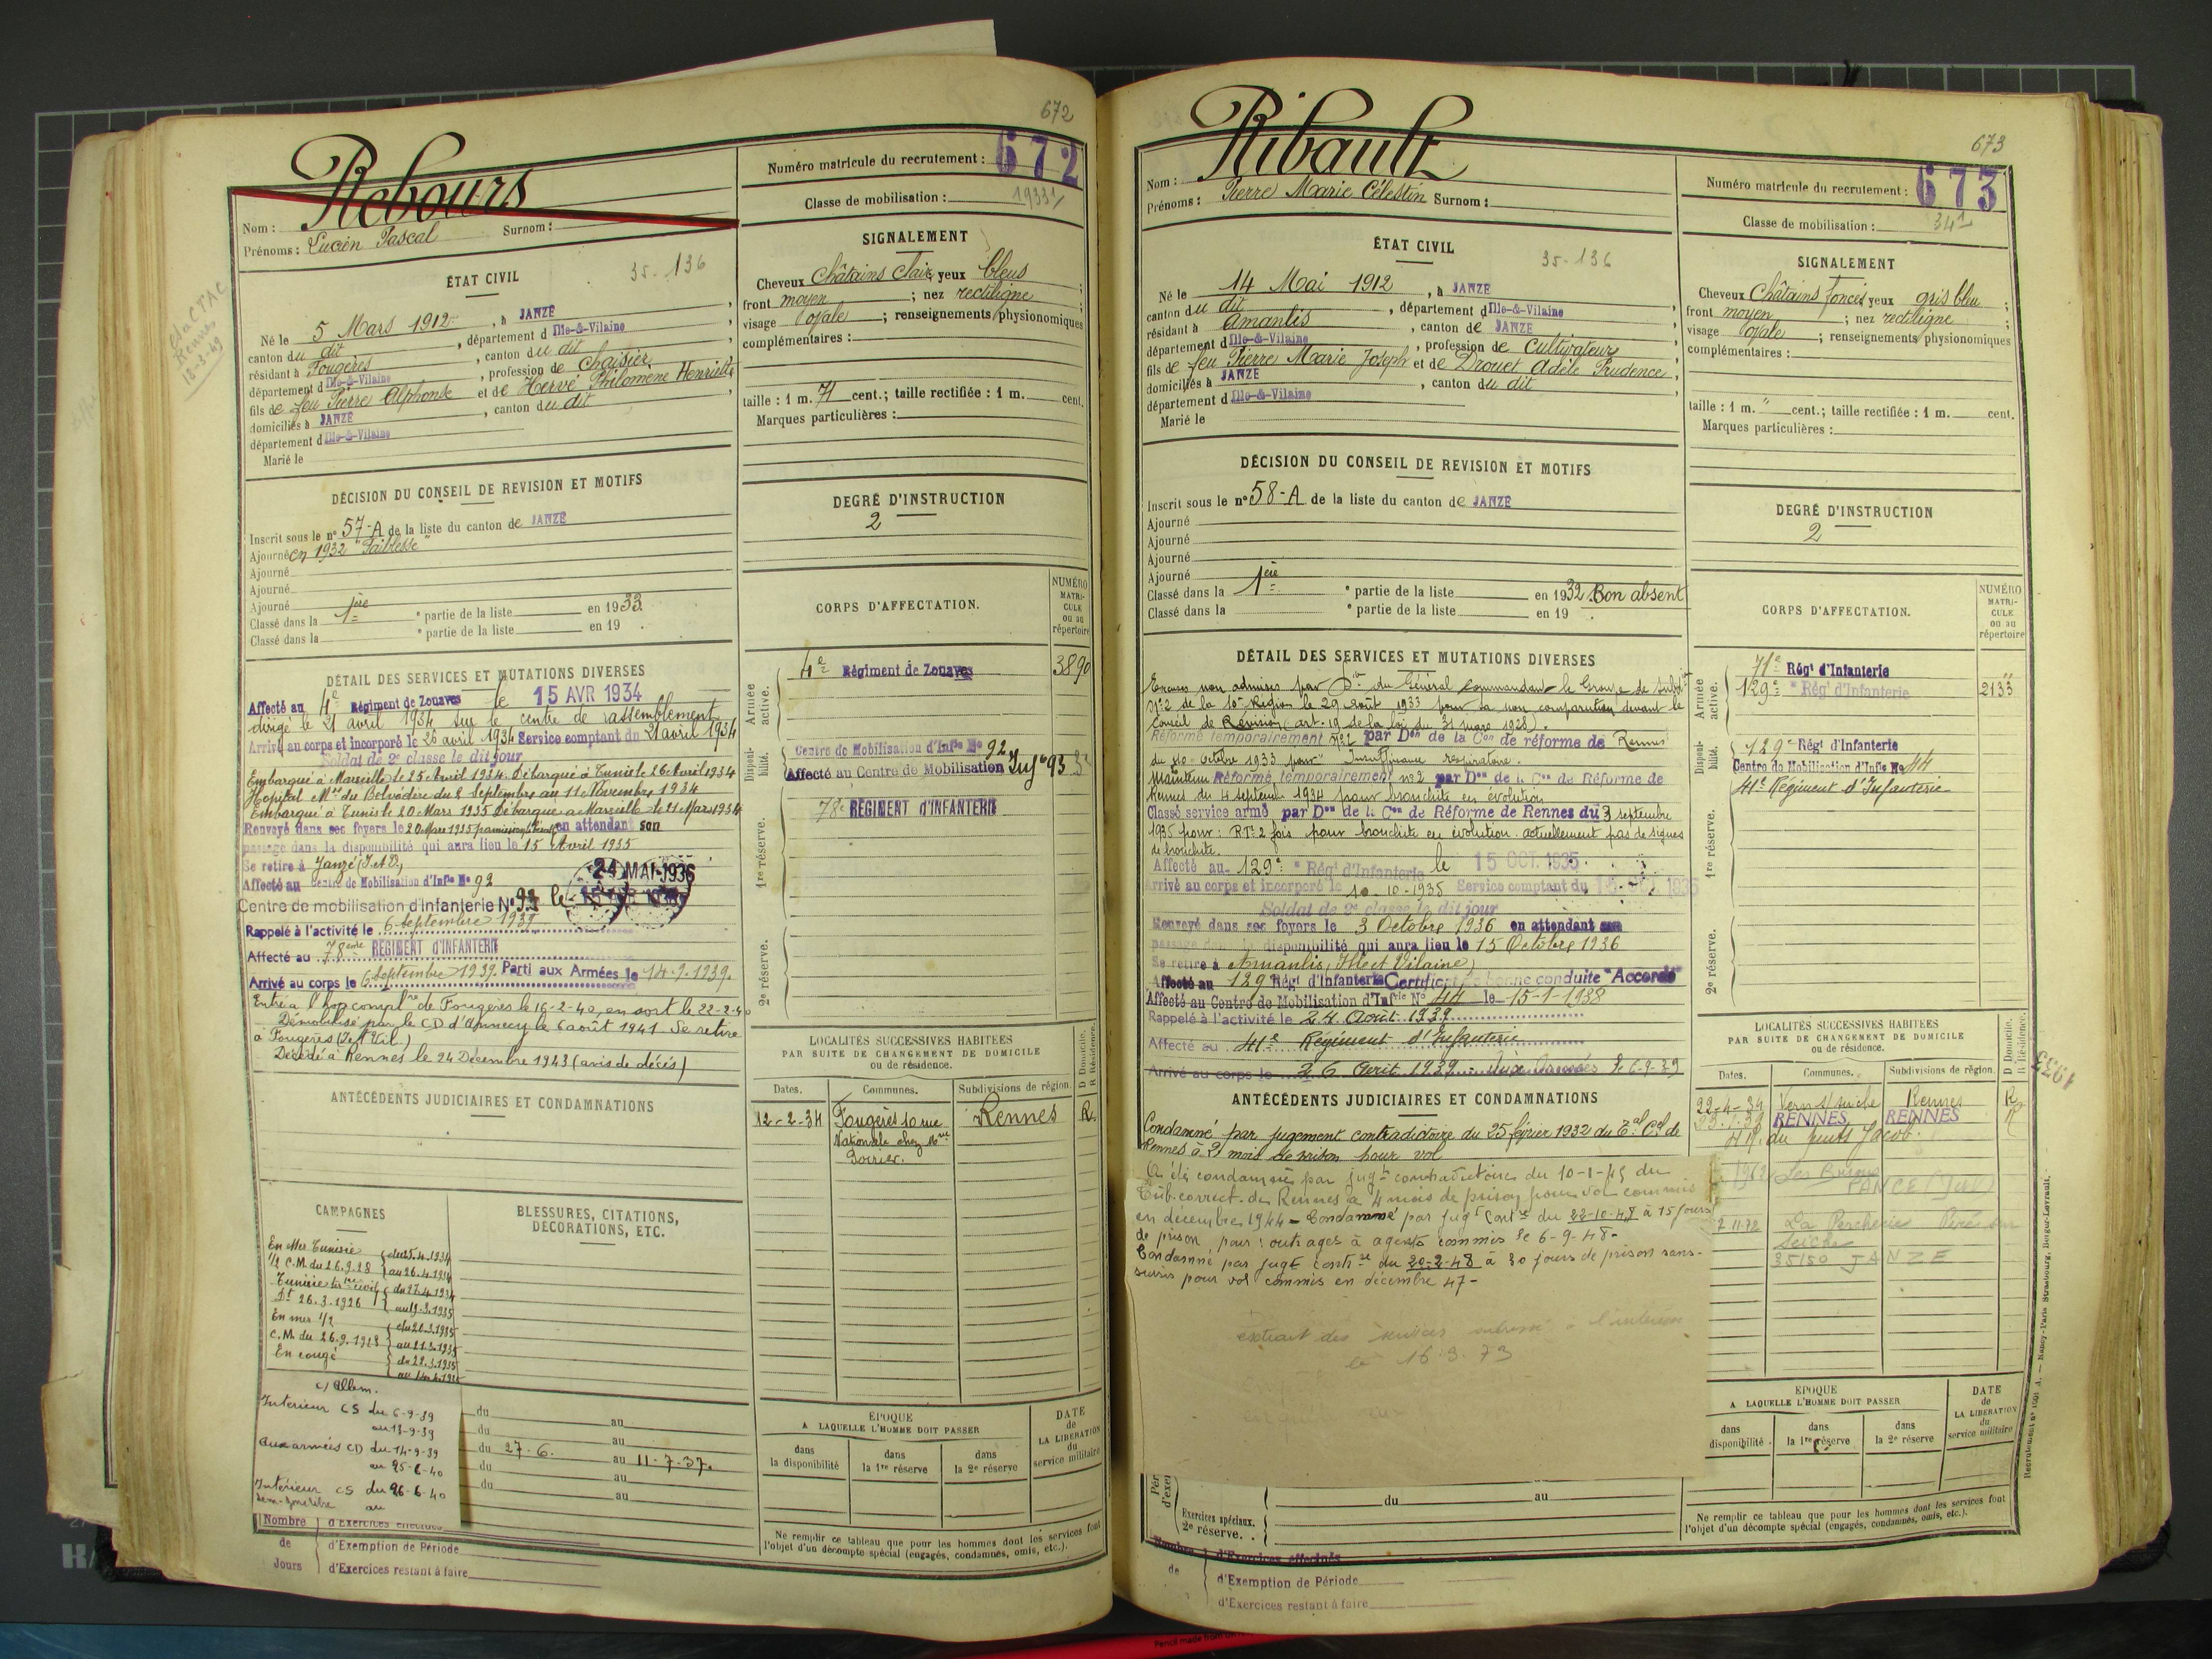 672
Rebours
Nom :
Prénoms : Lucien Pascal Surnom :
Numéro matricule du recrutement : 672
Classe de mobilisation : 1933/1
ÉTAT CIVIL
35-136
Né le 5 Mars 1912, à JANZÉ,
canton du dit, département d Ille-&-Vilaine
résidant à Fougères, canton du dit
département d Ille-&-Vilaine, profession de Chaisier
fils de feu Pierre Alphonse et de Hervé Philomène Henriette
domiciliés à JANZÉ, canton du dit
département d Ille-&-Vilaine
Marié le
SIGNALEMENT
Cheveux Châtains clairs yeux bleus ;
front moyen ; nez rectiligne
visage ovale ; renseignements physionomiques
complémentaires :
taille : 1 m. 71 cent.; taille rectifiée : 1 m. cent.
Marques particulières :
DÉCISION DU CONSEIL DE REVISION ET MOTIFS
Inscrit sous le n° 57-A de la liste du canton de JANZÉ
Ajourné en 1932 "Faiblesse"
Ajourné
Ajourné
Ajourné
Classé dans la 1ère partie de la liste en 1933.
Classé dans la ° partie de la liste en 19 .
DEGRÉ D'INSTRUCTION
2
DÉTAIL DES SERVICES ET MUTATIONS DIVERSES
Affecté au 4e Régiment de Zouaves le 15 AVR 1934
dirigé le 21 avril 1934 sur le centre de rassemblement
Arrivé au corps et incorporé le 26 avril 1934 Service comptant du 21 avril 1934
Soldat de 2e classe le dit jour
Embarqué à Marseille le 25 Avril 1934. Débarqué à Tunis le 26 Avril 1934
Hopital Mre du Belvédère du 8 Septembre au 11 Novembre 1934
Embarqué à Tunis le 20 Mars 1935 Débarqué à Marseille le 21 Mars 1935
Renvoyé dans ses foyers le 20 Mars 1935 en attendant son
passage dans la disponibilité qui aura lieu le 15 Avril 1935
Se retire à Janzé (I.&V.)
Affecté au Centre de Mobilisation d'Infie No 92
24 MAI 1936
Centre de mobilisation d'Infanterie N° 93 le
Rappelé à l'activité le 6 Septembre 1939
Affecté au 78ème RÉGIMENT D'INFANTERIE
Arrivé au corps le 6 Septembre 1939. Parti aux Armées le 14-9-1939.
Entré à l'hop compl're de Fougères le 16-2-40, en sort le 22-2-40
Démobilisé par le CD d'Annecy le 6 août 1941 Se retire
à Fougères (I et Vil.)
Décédé à Rennes le 24 Décembre 1943 (avis de décès)
CORPS D'AFFECTATION.
NUMÉRO MATRICULE ou au répertoire
Armée active.
4e Régiment de Zouaves 3890
Disponibilité.
Centre de Mobilisation d'Infie No 92
Affecté au Centre de Mobilisation Infie 93
1re réserve.
78e RÉGIMENT D'INFANTERIE
2e réserve.
ANTÉCÉDENTS JUDICIAIRES ET CONDAMNATIONS
LOCALITÉS SUCCESSIVES HABITÉES
PAR SUITE DE CHANGEMENT DE DOMICILE
ou de résidence.
D Domicile. R Résidence.
Dates. Communes. Subdivisions de région.
12-2-34 Fougères 10 rue Rennes R.
Nationale chez Mme
Poirier.
CAMPAGNES
BLESSURES, CITATIONS, DÉCORATIONS, ETC.
En Mer Tunisie du 25.4.1934
1/2 C.M. du 26.9.28 au 26.4.1934
Tunisie du 27.4.1934
Dt 26.3.1926 au 19.3.1935
En mer 1/2 du 20.3.1935
C.M. du 26.9.1928 au 21.3.1935
En congé du 22.3.1935
c/ Allem.
Intérieur CS du 6-9-39
au 13-9-39
aux armées CD du 14-9-39
au 25-6-40
Intérieur CS du 26-6-40
au
du au
du au
du 27.6. au 11-7-37.
du au
du au
Nombre de Jours
d'Exercices effectués
d'Exemption de Période
d'Exercices restant à faire
ÉPOQUE
A LAQUELLE L'HOMME DOIT PASSER
dans la disponibilité
dans la 1re réserve
dans la 2e réserve
DATE de LA LIBÉRATION du service militaire
Ne remplir ce tableau que pour les hommes dont les services font
l'objet d'un décompte spécial (engagés, condamnés, omis, etc.).
Rennes
18-3-49
673
Ribault
Nom :
Prénoms : Pierre Marie Célestin Surnom :
Numéro matricule du recrutement : 673
Classe de mobilisation : 34/1
ÉTAT CIVIL
35-136
Né le 14 Mai 1912, à JANZÉ
canton du dit, département d Ille-&-Vilaine
résidant à Amanlis, canton de JANZÉ
département d Ille-&-Vilaine, profession de Cultivateur
fils de feu Pierre Marie Joseph et de Drouet Adèle Prudence,
domiciliés à JANZÉ, canton du dit
département d Ille-&-Vilaine
Marié le
SIGNALEMENT
Cheveux Châtains foncés yeux gris bleu ;
front moyen ; nez rectiligne ;
visage ovale ; renseignements physionomiques
complémentaires :
taille : 1 m. " cent.; taille rectifiée : 1 m. cent.
Marques particulières :
DÉCISION DU CONSEIL DE REVISION ET MOTIFS
Inscrit sous le n° 58-A de la liste du canton de JANZÉ
Ajourné
Ajourné
Ajourné
Ajourné
Classé dans la 1ère ° partie de la liste en 1932 Bon absent
Classé dans la ° partie de la liste en 19 .
DEGRÉ D'INSTRUCTION
2
DÉTAIL DES SERVICES ET MUTATIONS DIVERSES
Excuses non admises par Don du Général Commandant le Groupe de Subdon
No 2 de la 10e Région le 29 Août 1933 pour sa non comparution devant le
Conseil de Révision (art. 19 de la loi du 31 mars 1928).
Réformé temporairement No 2 par Don de la Con de réforme de Rennes
du 10 Octobre 1933 pour "Insuffisance respiratoire.
Maintenu Réformé temporairement no 2 par Don de la Con de Réforme de
Rennes du 4 Septembre 1934 pour bronchite en évolution
Classé service armé par Don de la Con de Réforme de Rennes du 3 septembre
1935 pour : RT 2 fois pour bronchite en évolution. actuellement pas de signes
de bronchite.
Affecté au 129e Régt d'Infanterie le 15 OCT. 1935
Arrivé au corps et incorporé le 20-10-1935 Service comptant du
Soldat de 2e classe le dit jour
Renvoyé dans ses foyers le 3 Octobre 1936 en attendant son
passage dans la disponibilité qui aura lieu le 15 Octobre 1936
Se retire à Amanlis, (Ille et Vilaine)
Affecté au 129 Régt d'Infanterie Certificat de bonne conduite "Accordé"
Affecté au Centre de Mobilisation d'Infrie No 44 le 15-1-1938
Rappelé à l'activité le 24 Août 1939
Affecté au 41e Régiment d'Infanterie
Arrivé au corps le 26 Août 1939. Aux Armées le 6-9-39
CORPS D'AFFECTATION.
NUMÉRO MATRICULE ou au répertoire
Armée active.
71e Régt d'Infanterie
129e Régt d'Infanterie 2133
Disponibilité.
129e Régt d'Infanterie
Centre de Mobilisation d'Infie No 44
41e Régiment d'Infanterie
1re réserve.
2e réserve.
ANTÉCÉDENTS JUDICIAIRES ET CONDAMNATIONS
Condamné par jugement contradictoire du 25 février 1932 du Tal Cel de
Rennes à 2 mois de prison pour vol
A été condamné par jugt contradictoire du 10-1-45 du
Trib. correct. de Rennes à 4 mois de prison pour vol commis
en décembre 1944 - Condamné par jugt Contre du 22-10-48 à 15 jours
de prison pour : outrages à agents commis le 6-9-48-
Condamné par jugt contre du 20-2-48 à 30 jours de prison sans-
sursis pour vol commis en décembre 47-
extrait des services adressé à l'intéressé
le 16.3.73
LOCALITÉS SUCCESSIVES HABITÉES
PAR SUITE DE CHANGEMENT DE DOMICILE
ou de résidence.
D Domicile. R Résidence.
Dates. Communes. Subdivisions de région.
22-4-34 Vern s/ seiche Rennes R
RENNES RENNES R
du puits Jacob.
La Percherie Piré sur
Seiche
35150 JANZE
1933
Exercices spéciaux.
2e réserve. .
du au
Nombre de
d'Exercices effectués
d'Exemption de Période
d'Exercices restant à faire
ÉPOQUE
A LAQUELLE L'HOMME DOIT PASSER
dans disponibilité
dans la 1re réserve
dans la 2e réserve
DATE de LA LIBÉRATION du service militaire
Ne remplir ce tableau que pour les hommes dont les services font
l'objet d'un décompte spécial (engagés, condamnés, omis, etc.).
Nancy-Paris Strasbourg, Berger-Levrault.